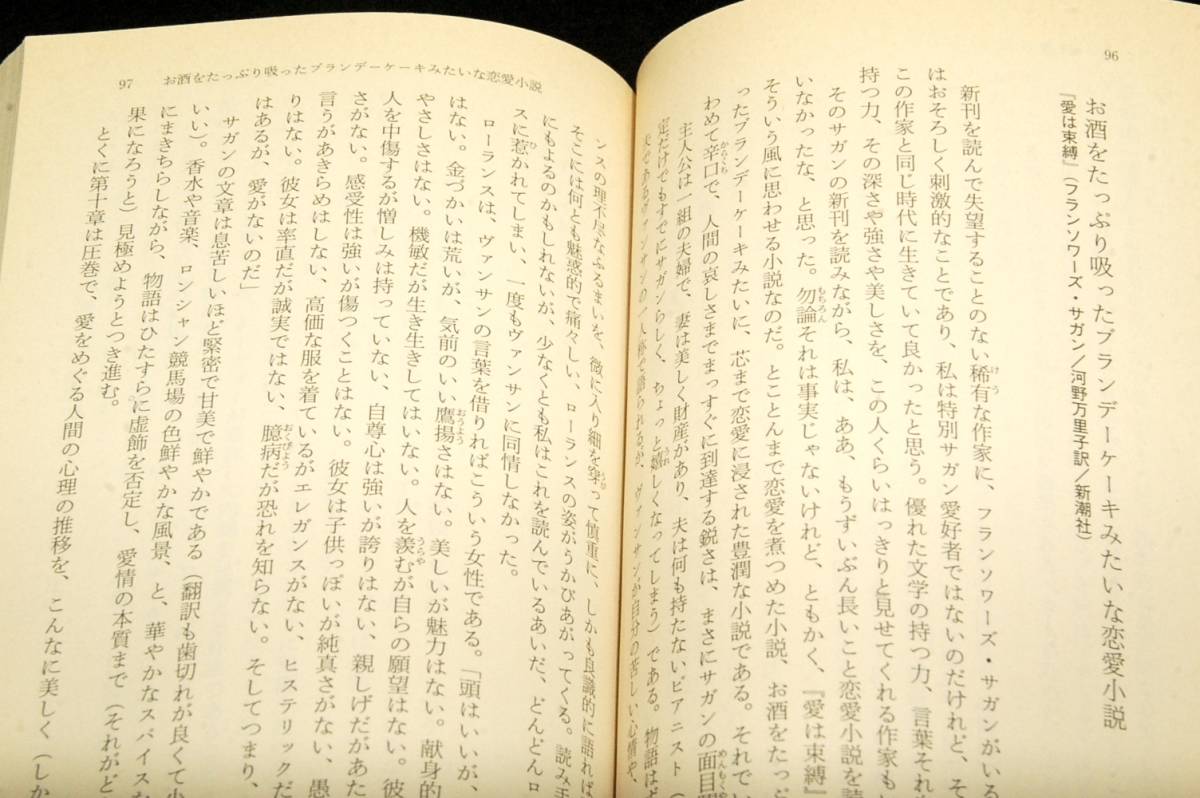 96
お酒をたっぷり吸ったブランデーケーキみたいな恋愛小説
『愛は束縛』(フランソワーズ・サガン/河野万里子訳/新潮社)
新刊を読んで失望することのない稀有な作家に、フランソワーズ・サガンがいる
はおそろしく刺激的なことであり、私は特別サガン愛好者ではないのだけれど、そ
この作家と同じ時代に生きていて良かったと思う。優れた文学の持つ力、言葉それ
持つ力、その深さや強さや美しさを、この人くらいはっきりと見せてくれる作家も
そのサガンの新刊を読みながら、私は、ああ、もうずいぶん長いこと恋愛小説を読
いなかったな、と思った。勿論それは事実じゃないけれど、ともかく、『愛は束縛』
そういう風に思わせる小説なのだ。とことんまで恋愛を煮つめた小説、お酒をたっぷ
ったブランデーケーキみたいに、芯まで恋愛に浸された豊潤な小説である。それでい
わめて辛口で、人間の哀しさまでまっすぐに到達する鋭さは、まさにサガンの面目
主人公は一組の夫婦で、妻は美しく財産があり、夫は何も持たないピアニスト(
定だけでもすでにサガンらしく、ちょっと嬉しくなってしまう)である。物語はど
夫であるヴァンサンの一人称で語られるが、ヴァンサンが自分の苦しい心情や、
97
お酒をたっぷり吸ったブランデーケーキみたいな恋愛小説
ンスの理不尽なふるまいを、微に入り細を穿って慎重に、しかも良識的に語れば
そこには何とも魅惑的で痛々しい、ローランスの姿がうかびあがってくる。読み手
にもよるのかもしれないが、少なくとも私はこれを読んでいるあいだ、どんどんロ
スに惹かれてしまい、一度もヴァンサンに同情しなかった。
ローランスは、ヴァンサンの言葉を借りればこういう女性である。「頭はいいが、
はない。金づかいは荒いが、気前のいい鷹揚さはない。美しいが魅力はない。献身的
やさしさはない。機敏だが生き生きしてはいない。人を羨むが自らの願望はない。彼
人を中傷するが憎しみは持っていない、自尊心は強いが誇りはない、親しげだがあた
さがない。感受性は強いが傷つくことはない。彼女は子供っぽいが純真さがない、愚
言うがあきらめはしない、高価な服を着ているがエレガンスがない、ヒステリックだ
りはない。彼女は率直だが誠実ではない、臆病だが恐れを知らない。そしてつまり、
はあるが、愛がないのだ」
サガンの文章は息苦しいほど緊密で甘美で鮮やかである(翻訳も歯切れが良くて小
いい)。香水や音楽、ロンシャン競馬場の色鮮やかな風景、と、華やかなスパイス
にまきちらしながら、物語はひたすらに虚飾を否定し、愛情の本質まで(それがど
果になろうと)見極めようとつき進む。
とくに第十章は圧巻で、愛をめぐる人間の心理の推移を、こんなに美しく(しか